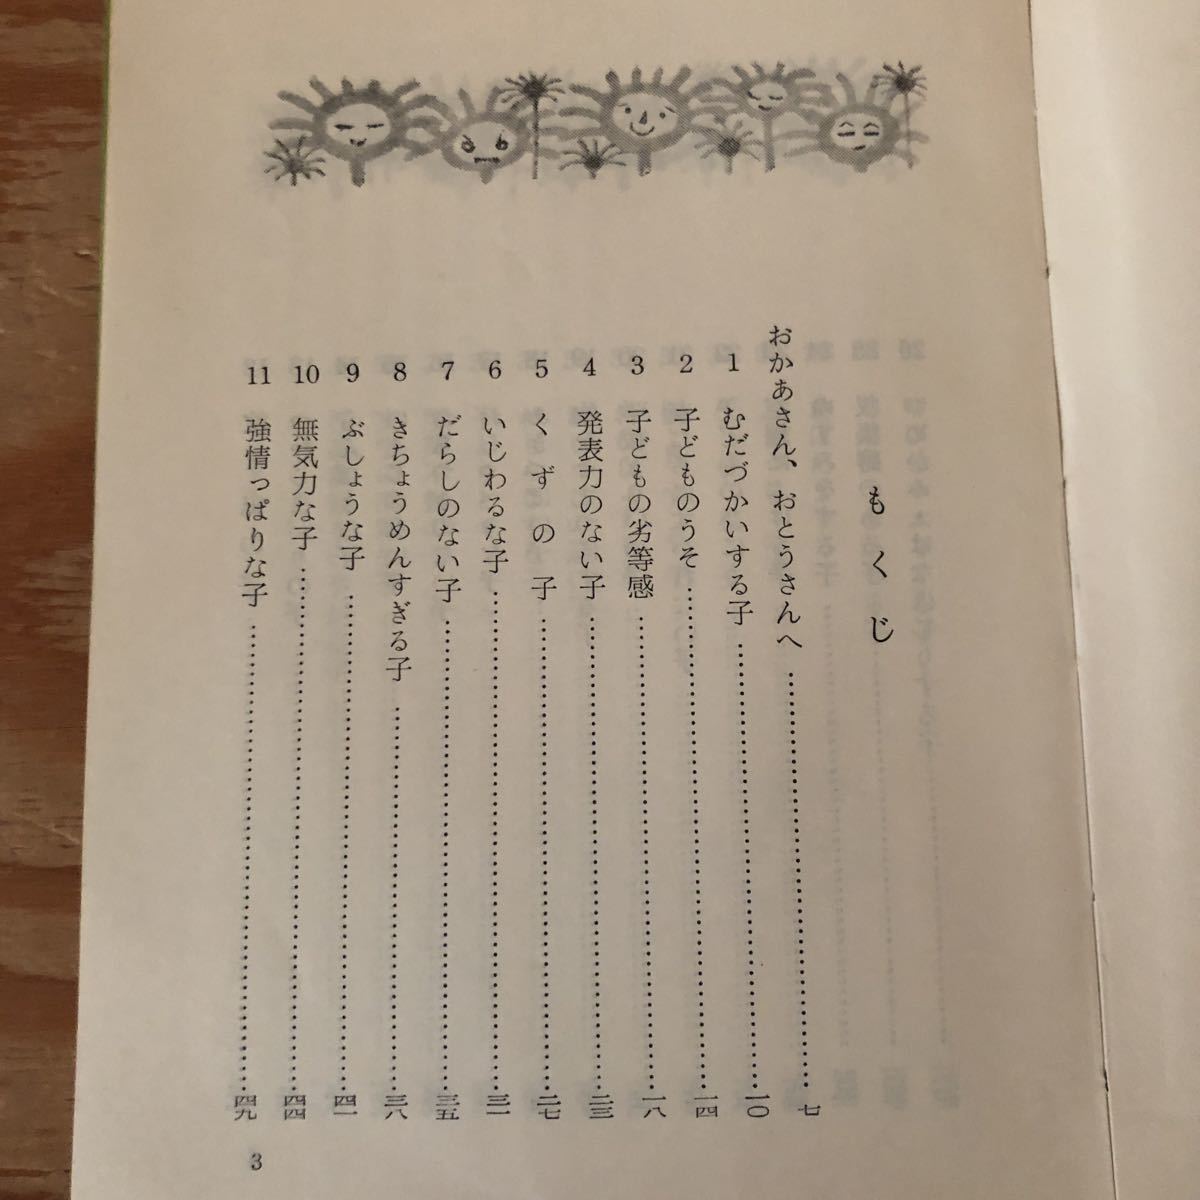 もくじ
おかあさん、おとうさんへ……………………七
1 むだづかいする子……………………一〇
2 子どものうそ……………………一四
3 子どもの劣等感……………………一八
4 発表力のない子……………………二三
5 くずの子……………………二七
6 いじわるな子……………………三一
7 だらしのない子……………………三五
8 きちょうめんすぎる子……………………三八
9 ぶしょうな子……………………四一
10 無気力な子……………………四四
11 強情っぱりな子……………………四九
3